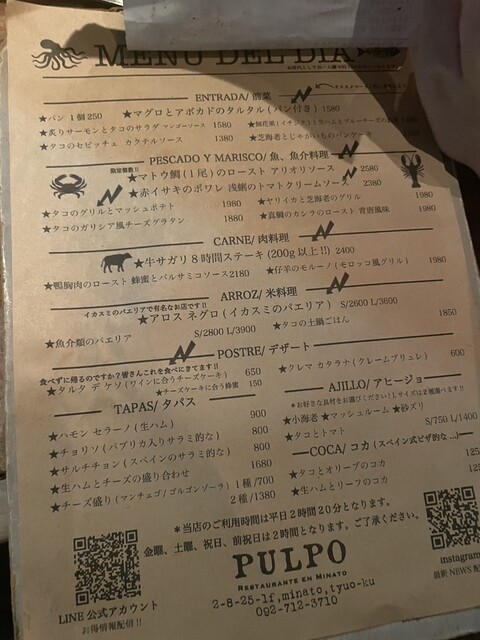 MENU DEL DIA
ENTRADA/ 前菜
★パン 1個250 ★マグロとアボカドのタルタル(パン付き) 1580
★炙りサーモンとタコのサラダ マンゴーソース 1580
★タコのセビッチェ カクテルソース 1380 ★芝海老とじゃがいものパンケーキ
PESCADO Y MARISCO/ 魚、魚介料理
限定個数!! ★マトウ鯛(1尾)のロースト アリオリソース 2580
★赤イサキのポワレ 浅蜊のトマトクリームソース 2380
★タコのグリルとマッシュポテト 1980 ★ヤリイカと芝海老のグリル 1980
★タコのガリシア風チーズグラタン 1880 ★真鯛のカシラのロースト 青唐風味 1980
CARNE/ 肉料理
★牛サガリ 8時間ステーキ(200g以上!!) 2400
★鴨胸肉のロースト 蜂蜜とバルサミコソース2180 ★仔羊のモルーノ(モロッコ風グリル) 1980
ARROZ/ 米料理
イカスミのパエリアで有名なお店です!!
★アロス ネグロ(イカスミのパエリア) S/2600 L/3600
★魚介類のパエリア S/2800 L/3900 ★タコの土鍋ごはん 1850
POSTRE/ デザート
食べずに帰るのですか?皆さんこれを食べにきてます!!
★タルタ デ ケソ(ワインに合うチーズケーキ) 650 ★クレマ カタラナ(クレームブリュレ) 600
★チーズケーキに合う蜂蜜 150
TAPAS/ タパス
★ハモン セラーノ(生ハム) 900
★チョリソ(パプリカ入りサラミ的な) 800
★サルチチョン(スペインのサラミ的な) 800
★生ハムとチーズの盛り合わせ 1680
★チーズ盛り(マンチェゴ/ゴルゴンゾーラ) 1種/700
2種/1380
AJILLO/ アヒージョ
★小海老 ★マッシュルーム ★砂ズリ
★タコとトマト S/750 L/1400
COCA/ コカ(スペイン式ピザ的な...)
★タコとオリーブのコカ
★生ハムとリーフのコカ
*当店のご利用時間は平日2時間20分となります。
金曜、土曜、祝日、前祝日は2時間となります、ご了承ください。
PULPO
RESTAURANTE EN MINATO
2-8-25-1f,minato,tyuo-ku
092-712-3710
LINE 公式アカウント
お得情報配信!!
instagram
最新 NEWS 配